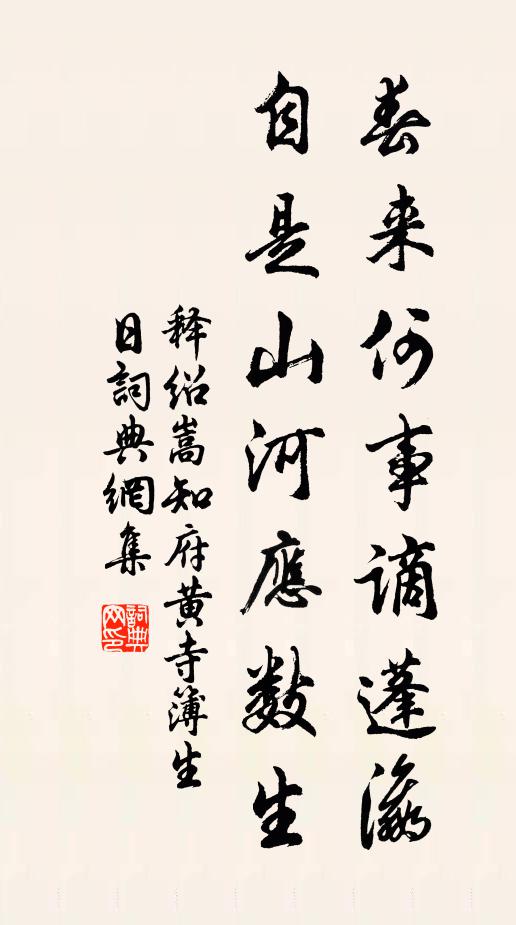 春来何事謫蓬瀛
自是山河應数生
释绍嵩知府黄寺簿生
日詞典網集
詞典网印